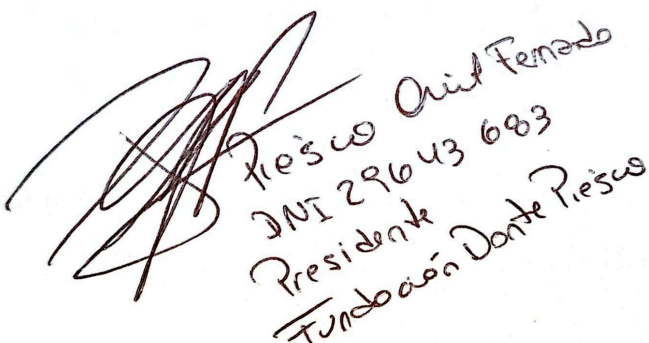 Piesco Ariel Fernando
DNI 29643683
Presidente
Fundación Dante Piesco